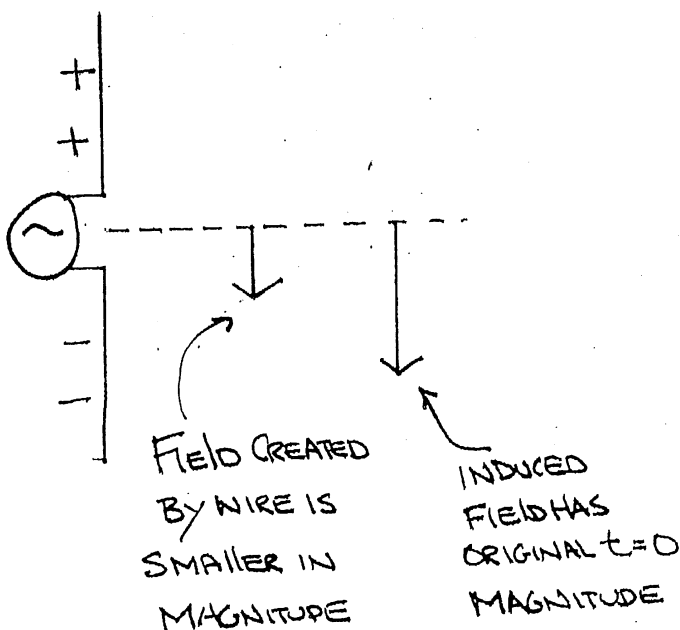 +
+
~
−
−
FIELD CREATED
BY WIRE IS
SMALLER IN
MAGNITUDE
INDUCED
FIELD HAS
ORIGINAL t=0
MAGNITUDE